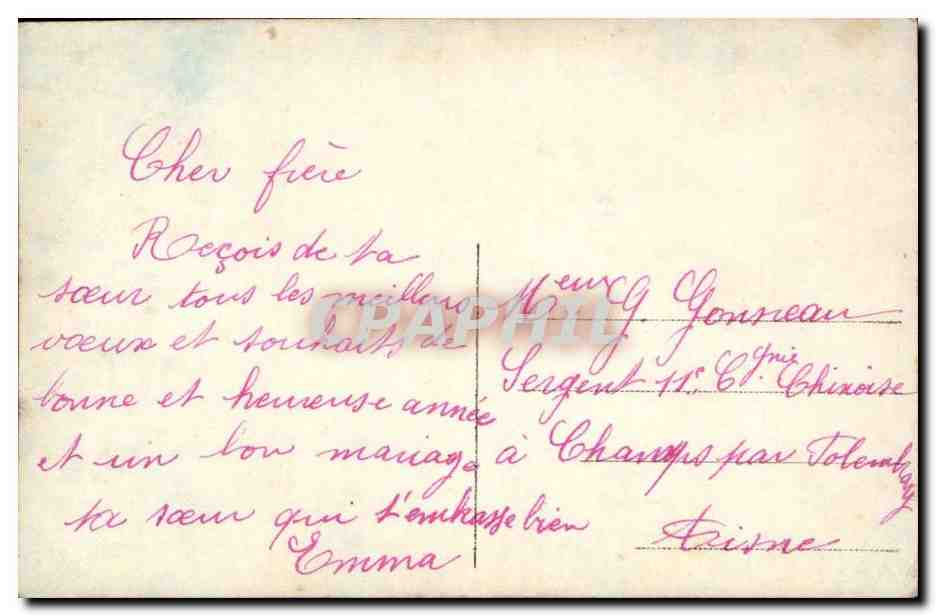 Cher frère
Reçois de ta
sœur tous les meilleurs
vœux et souhaits de
bonne et heureuse année
et un bon mariage
ta sœur qui t'embrasse bien
Emma
Meur G. Gonneau
Sergent 11e Cgnie Chinoise
à Champs par
Aisne
CPAPHIL